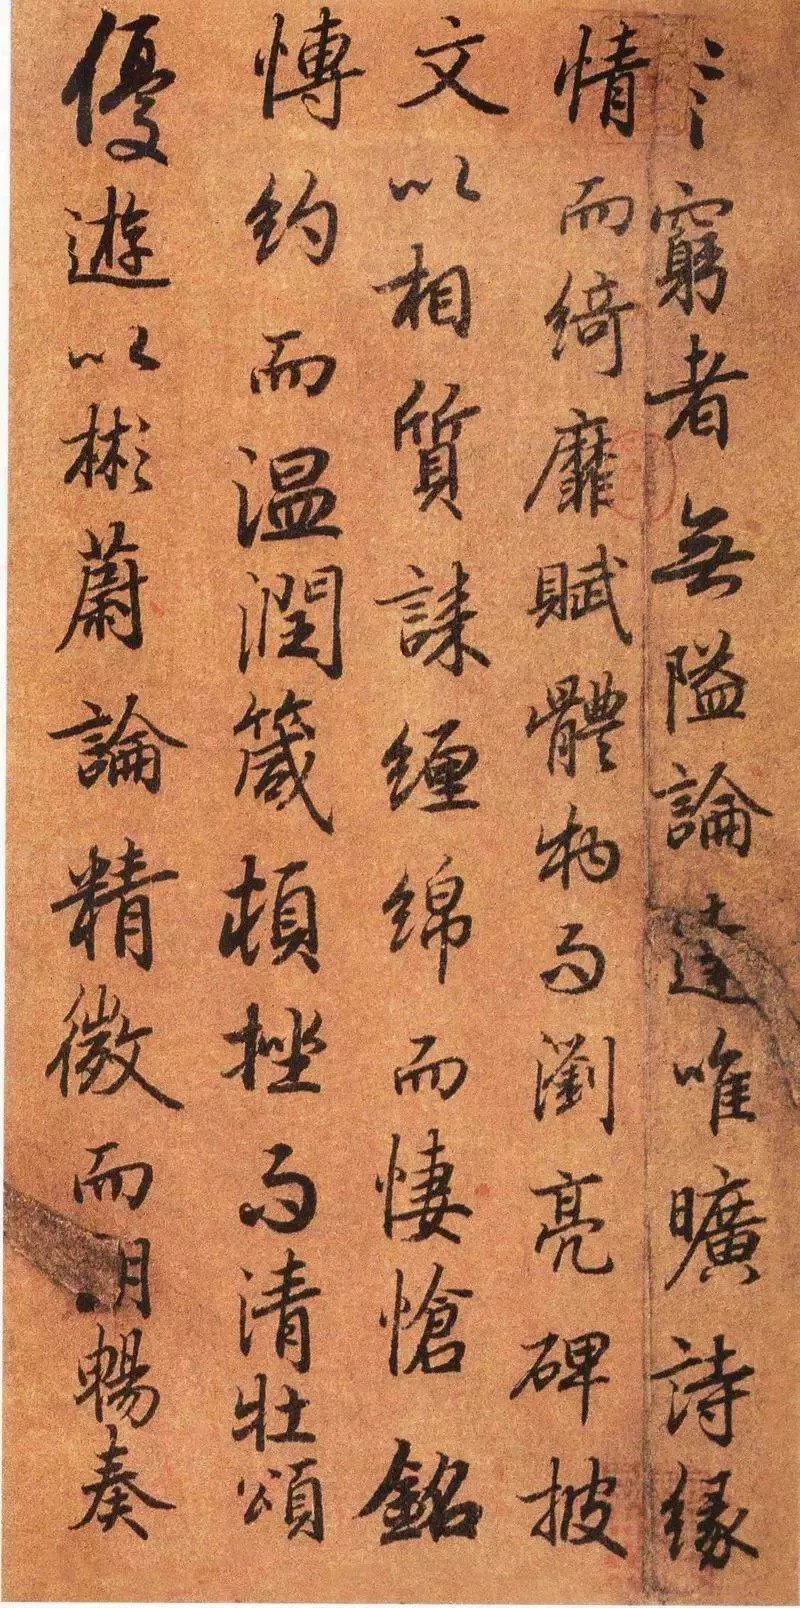 窮者無隘論達唯曠詩緣
情而綺靡賦體物而瀏亮碑披
文以相質誄纏綿而悽愴銘
慱約而温潤箴頓挫而清壯頌
優遊以彬蔚論精微而朗暢奏